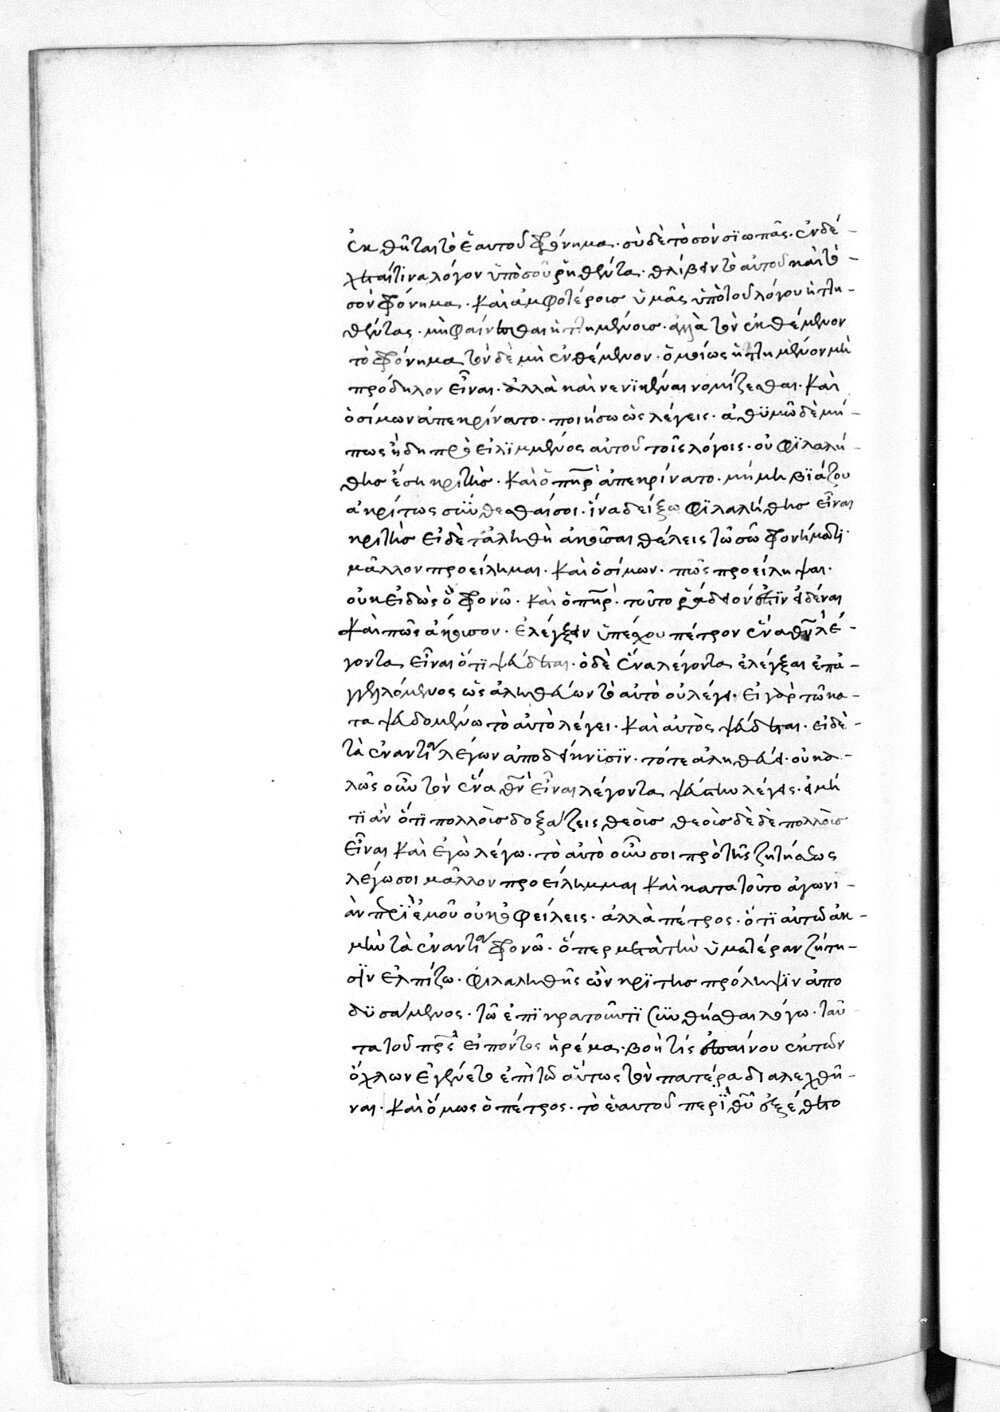 ἐκθῆται τὸ ἑαυτοῦ φρόνημα· σὺ δὲ τὸ σὸν σϊωπᾶς· ἐνδέ-
χεται τινα λόγον ὑπὸ σοῦ ῥηθέντα· θλίβειν τὸ αὐτοῦ καὶ τὸ
σὸν φρόνημα· καὶ ἀμφοτέροις ὑμᾶς ὑπὸ τοῦ λόγου ἡττη-
θέντας· μὴ φαίνεσθαι ἡττημένοις· ἀλλὰ τὸν ἐκθέμενον
τὸ φρόνημα τὸν δὲ μὴ ἐνθέμενον· ὁμοίως ἡττημένον μὴ
πρόδηλον εἶναι· ἀλλὰ καὶ νενϊκηκέναι νομίζεσθαι· καὶ
ὁ σίμων ἀπεκρίνατο· ποιήσω ὡς λέγεις· ἀθϋμῶ δὲ μή-
πως ἤδη προειλϊμμένος αὐτοῦ τοῖς λόγοις· οὐ φϊλαλή-
θης ἔσῃ κριτὴς· καὶ ὁ πηρ ἀπεκρίνατο· μή με βϊάζου
ἀκρίτως συνθέσθαι σοι· ἵνα δείξω φϊλαλήθης εἶναι
κριτὴς εἰ δὲ τἀληθῆ ἀκοῦσαι θέλεις τῷ σῷ φρονήματι·
μᾶλλον προείλημαι· καὶ ὁ σίμων· πῶς προείληψαι·
οὐκ εἰδὼς ὃ φρονῶ· καὶ ὁ πηρ· τοῦτο ῥᾴδιόν ἐστϊν εἰδέναι
καὶ πῶς ἄκουσον· ἐλέγξειν ὑπέσχου πέτρον ἕνα θν λέ-
γοντα εἶναι ὅτι ψεύδεται· ὁ δὲ ἕνα λέγοντα ἐλέγξαι ἐπα-
γγελλόμενος ὡς ἀληθεύων τὸ αὐτὸ οὐ λέγει· εἰ γὰρ τῷ κα-
ταψευδομένῳ τὸ αὐτὸ λέγει· καὶ αὐτὸς ψεύδεται· εἰ δὲ
τὰ ἐναντία λέγων ἀποδείκνϊσϊν· τότε ἀληθεύει· οὐ κα-
λῶς οὖν τὸν ἕνα θν εἶναι λέγοντα ψεύστην λέγεις· εἰ μή
τι ἂν ὅτι πολλοῖς δοξάζεις θεοῖς θεοὶς δὲ δὲ πολλοὶς
εἶναι καὶ ἐγὼ λέγω· τὸ αὐτὸ οὖν σοι πρὸ τῆς ζητήσεως
λέγω σοι μᾶλλον προείλημμαι καὶ κατὰ τοῦτο ἀγωνι-
ὰν περὶ ἐμοῦ οὐκ ὀφείλεις· ἀλλὰ πέτρος· ὅτι αὐτῷ ἀκ-
μὴν τὰ ἐναντία φρονῶ· ὅπερ μετὰ τὴν ὑμετέραν ζήτη-
σϊν ἐλπίζω· φϊλαληθὴς ὢν κρϊτης πρόληψϊν ἀπο
δϋσάμενος· τῷ ἐπϊκρατοῦντϊ συνθήσθαι λόγῳ· ταῦ-
τα τοῦ πρς εἰπόντος ἠρέμα· βοή τις ἐπαίνου ἐκ τῶν
ὄχλων ἐγένετο ἐπὶ τῷ οὕτως τὸν πατέρα διαλεχθῆ-
ναι· καὶ ὅμως ὁ πέτρος· τὸ ἑαυτοῦ περϊ θυ ἐξέθετο